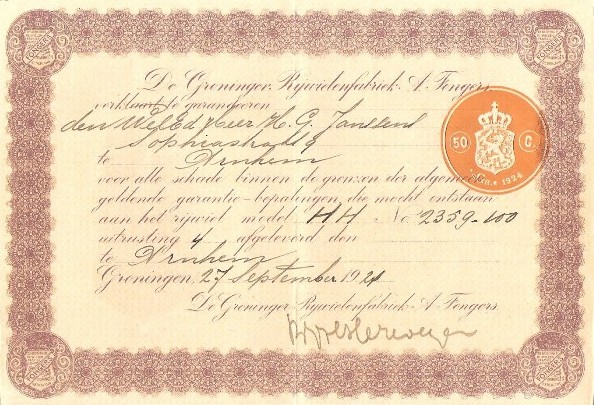 De Groninger Rijwielenfabriek A. Fongers
verklaart te garandeeren
den WelEd Heer H. G. Janssens
Sophiastraat 9
te Arnhem
voor alle schade binnen de grenzen der algemeen
geldende garantie-bepalingen die mocht ontstaan
aan het rijwiel model HH No 2359-100
uitrusting 4 afgeleverd den
te Arnhem
Groningen, 27 September 1921
De Groninger Rijwielenfabriek A. Fongers
50 C.
1924
FONGERS
FONGERS
FONGERS
FONGERS